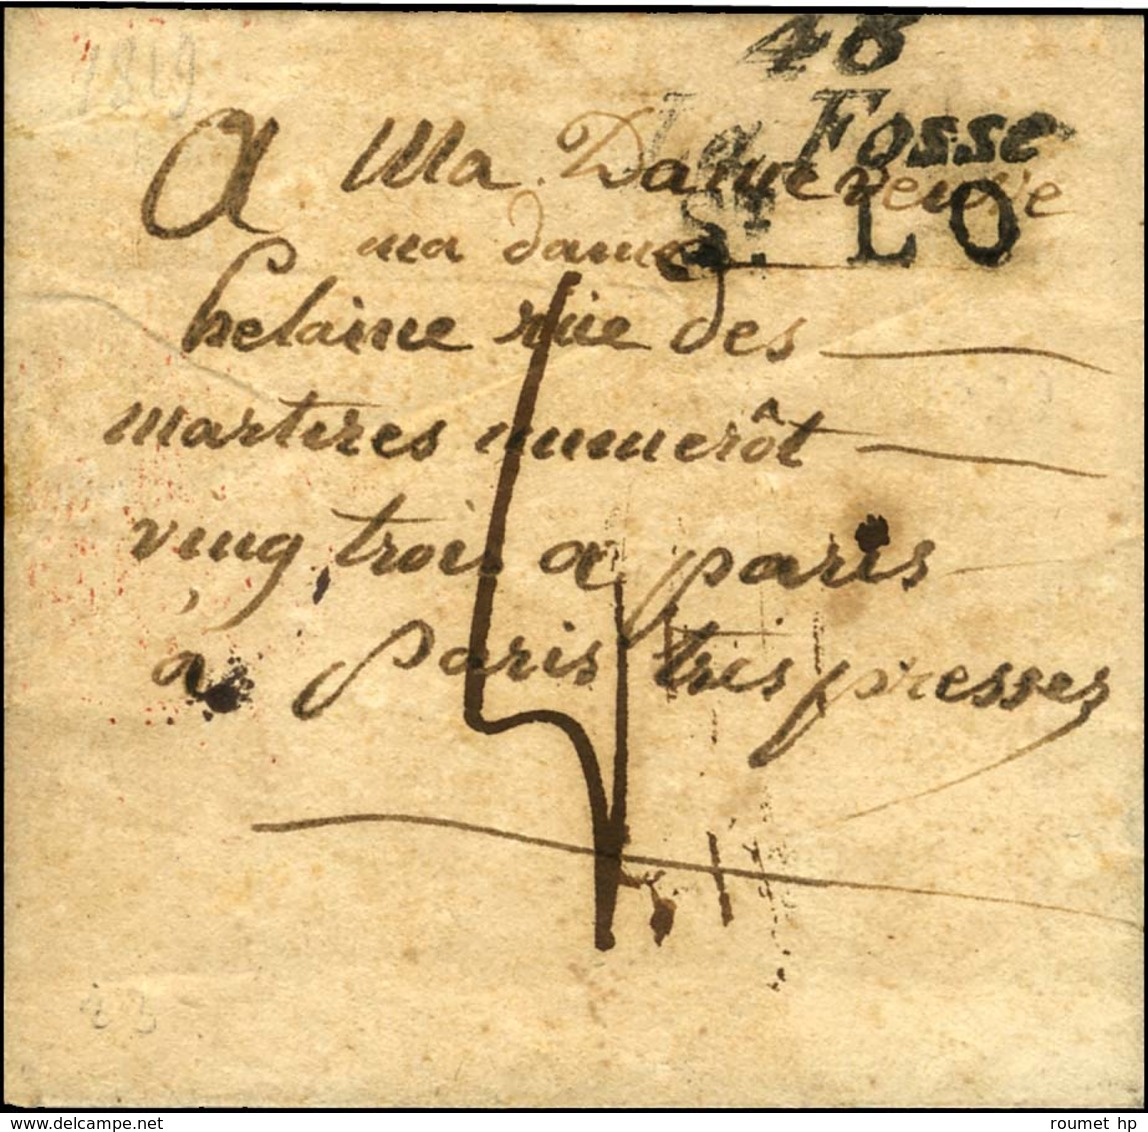 1819
48
La Fosse
St. LO
A Ma Dame veuve
ma dame
helaine rue des
martires numerôt
ving trois a paris
à paris tres presses
delcampe.net
roumet hp